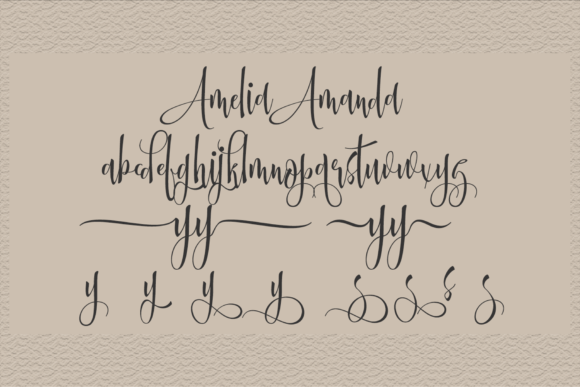 Amelia Amanda
abcdefghijklmnopqrstuvwxyz
yy yy
y y y y s s s s